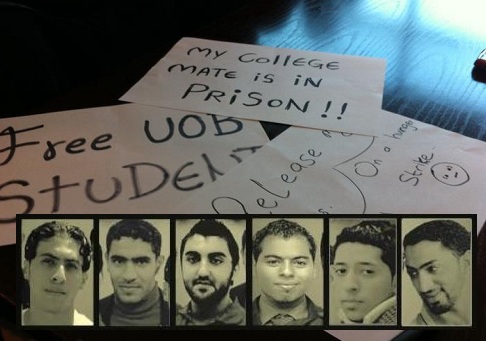 MY COLLEGE
MATE IS IN
PRiSON !!
Free UOB
StuDEnt
Release
On a hunger
Strike